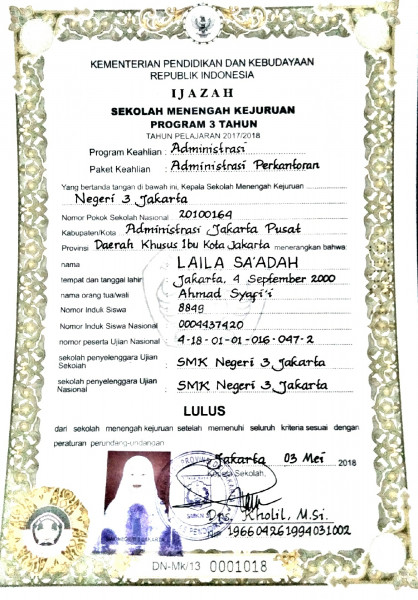 KEMENTERIAN PENDIDIKAN DAN KEBUDAYAAN
REPUBLIK INDONESIA
IJAZAH
SEKOLAH MENENGAH KEJURUAN
PROGRAM 3 TAHUN
TAHUN PELAJARAN 2017/2018
Program Keahlian : Administrasi
Paket Keahlian : Administrasi Perkantoran
Yang bertanda tangan di bawah ini, Kepala Sekolah Menengah Kejuruan
Negeri 3 Jakarta
Nomor Pokok Sekolah Nasional : 20100164
Kabupaten/Kota Administrasi Jakarta Pusat
Provinsi Daerah Khusus Ibu Kota Jakarta menerangkan bahwa:
nama : LAILA SA'ADAH
tempat dan tanggal lahir : Jakarta, 4 September 2000
nama orang tua/wali : Ahmad Syafi'i
Nomor Induk Siswa : 8849
Nomor Induk Siswa Nasional : 0004437420
nomor peserta Ujian Nasional : 4-18-01-01-016-047-2
sekolah penyelenggara Ujian Sekolah : SMK Negeri 3 Jakarta
sekolah penyelenggara Ujian Nasional : SMK Negeri 3 Jakarta
LULUS
dari sekolah menengah kejuruan setelah memenuhi seluruh kriteria sesuai dengan
peraturan perundang-undangan
Jakarta 03 Mei 2018
Kepala Sekolah,
Drs. Kholil, M.Si.
196604261994031002
DN-Mk/13 0001018